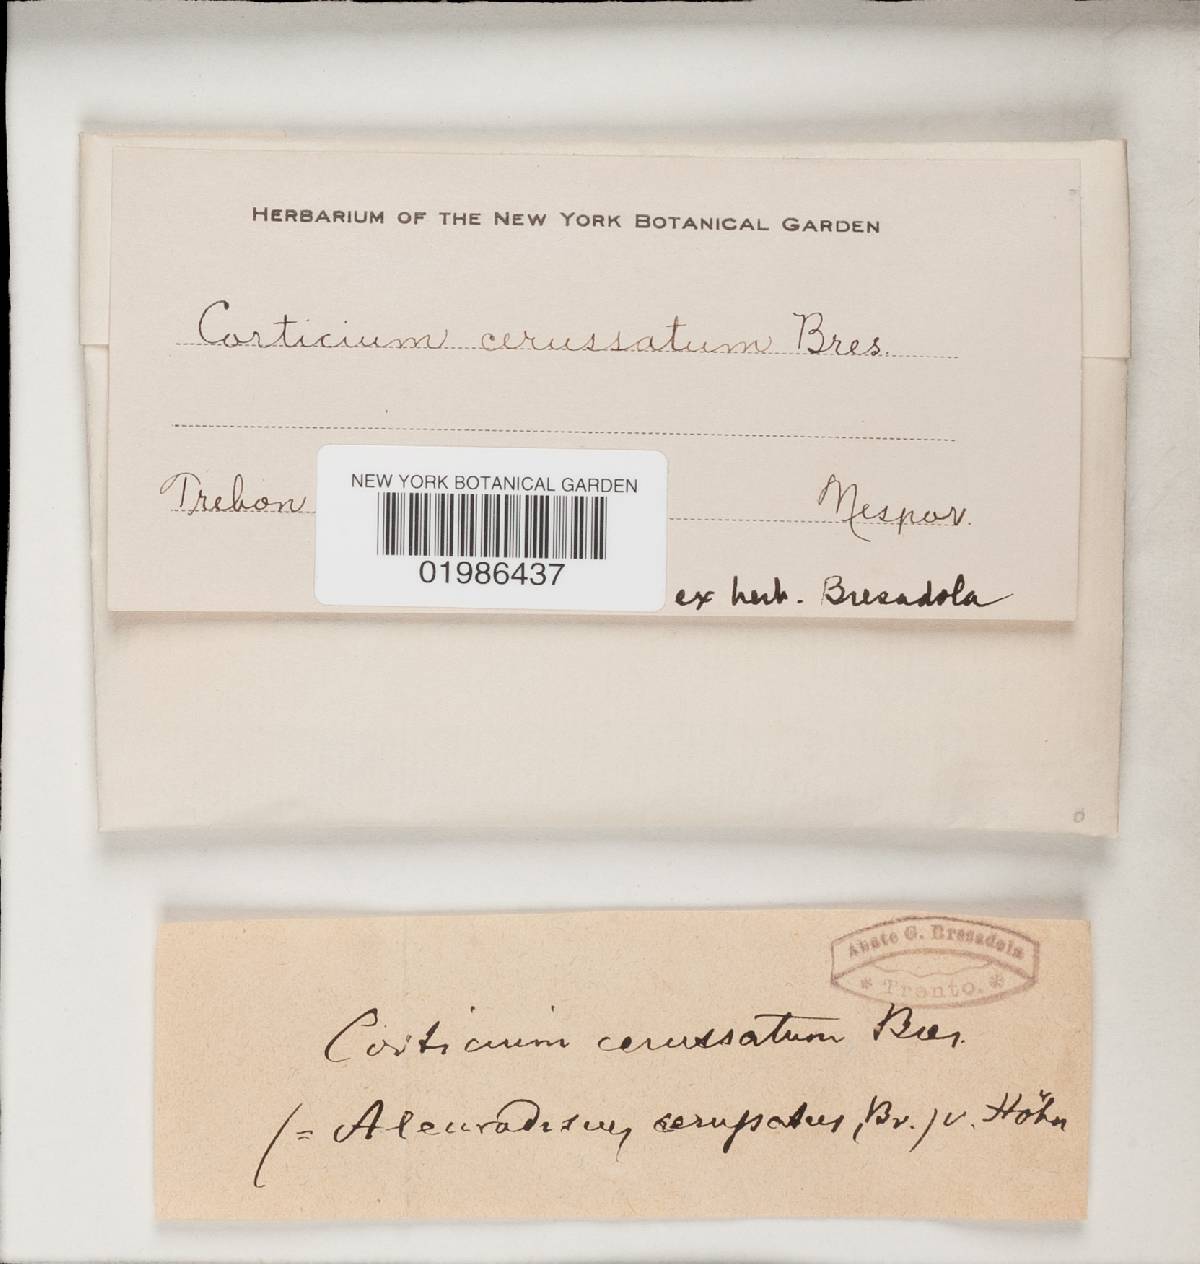 HERBARIUM OF THE NEW YORK BOTANICAL GARDEN
Corticium cerussatum Bres.
Trebon
Nespor.
NEW YORK BOTANICAL GARDEN
01986437
ex herb. Bresadola
Abate G. Bresadola
* Trento. *
Corticium cerussatum Bres.
(= Aleurodiscus cerussatus (Br.) v. Höhn